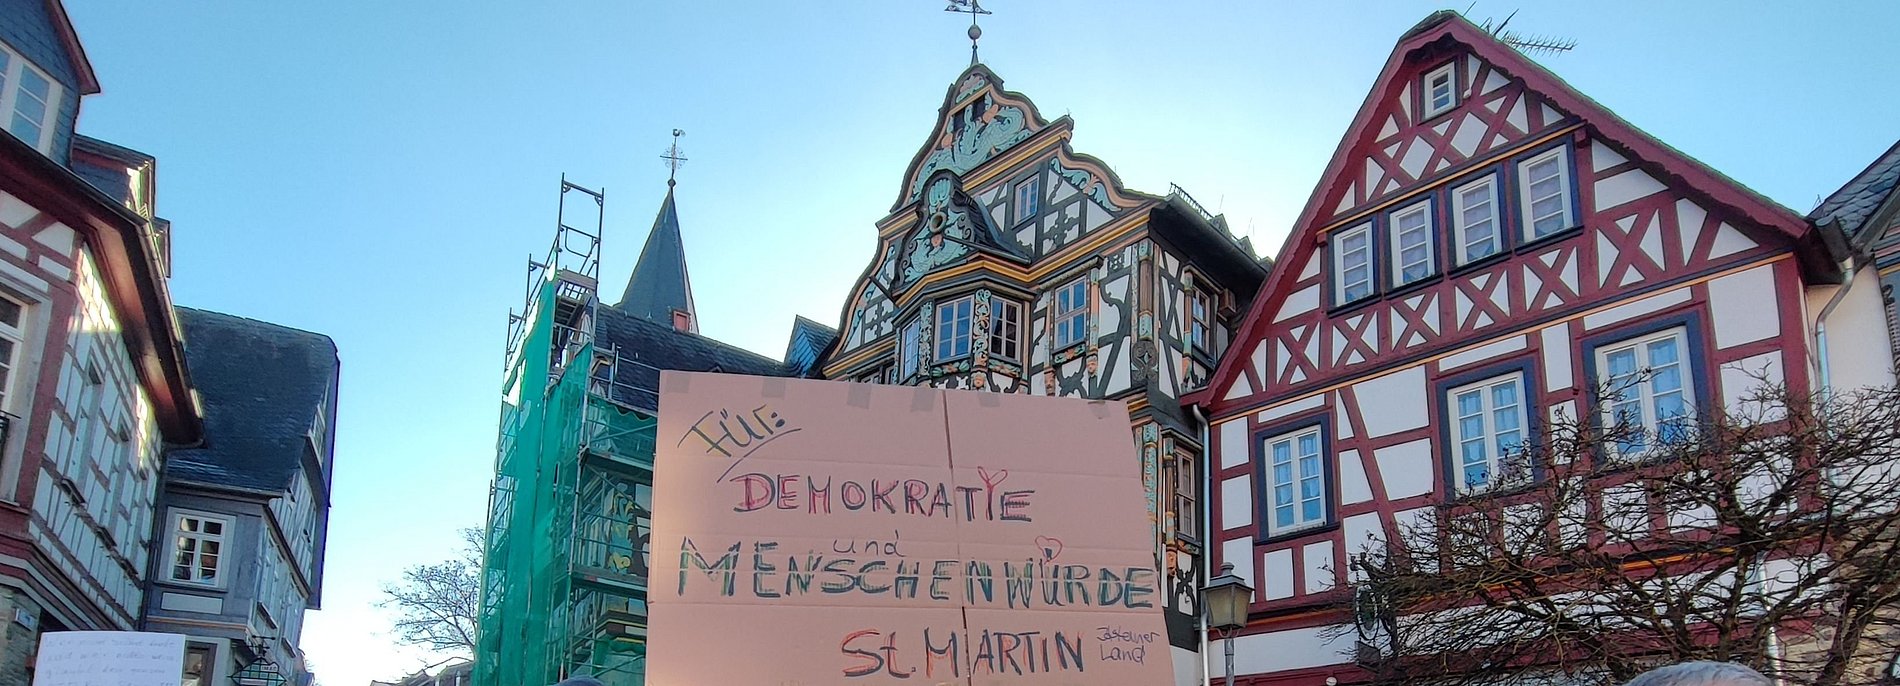 Für:
DEMOKRATIE
und
MENSCHENWÜRDE
St. MARTIN
Idsteiner
Land